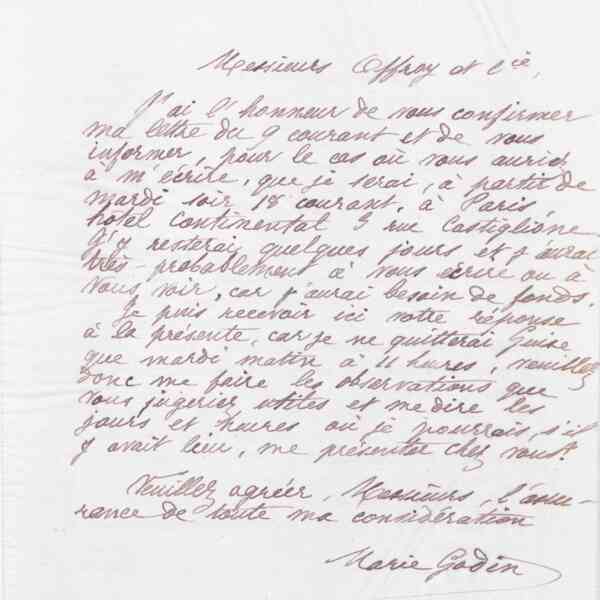 Messieurs Offroy et Cie,
J'ai l'honneur de vous confirmer
ma lettre du 9 courant et de vous
informer, pour le cas où vous auriez
à m'écrire, que je serai, à partir de
mardi soir 18 courant, à Paris,
hôtel Continental 3 rue Castiglione.
J'y resterai quelques jours et j'aurai
très-probablement à vous écrire ou à
vous voir, car j'aurai besoin de fonds.
Je puis recevoir ici votre réponse
à la présente, car je ne quitterai Guise
que mardi matin à 11 heures, veuillez
donc me faire les observations que
vous jugeriez utiles et me dire les
jours et heures où je pourrais, s'il
y avait lieu, me présenter chez vous.
Veuillez agréer, Messieurs, l'assu-
rance de toute ma considération
Marie Godin